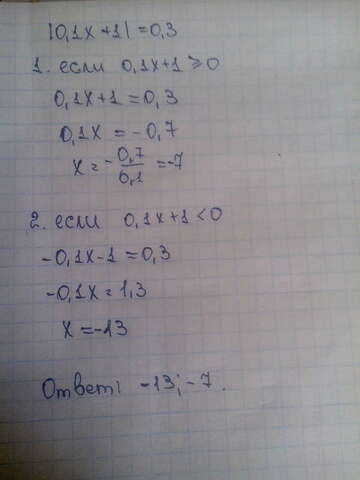 |0,1x+1|=0,3
1. если 0,1x+1≥0
0,1x+1=0,3
0,1x=-0,7
x=-0,7/0,1=-7
2. если 0,1x+1<0
-0,1x-1=0,3
-0,1x=1,3
x=-13
Ответ: -13; -7.